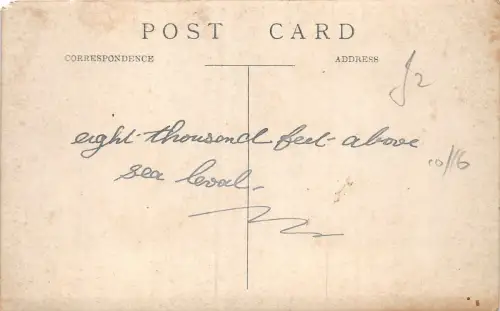 POST CARD
CORRESPONDENCE
ADDRESS
eight thousend feet above
sea leval.